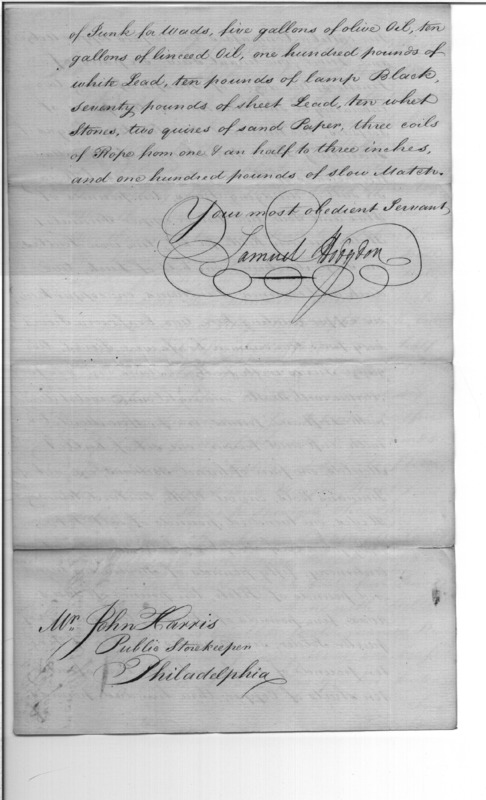 of Junk for Wads, five gallons of olive Oil, ten
gallons of linceed Oil, one hundred pounds of
white Lead, ten pounds of lamp Black,
Seventy pounds of sheet Lead, ten whet
Stones, two quires of sand Paper, three coils
of Rope from one & an half to three inches,
and one hundred pounds of slow Match.
Your most obedient Servant,
Samuel Hodgdon
Mr. John Harris
Public Storekeeper
Philadelphia